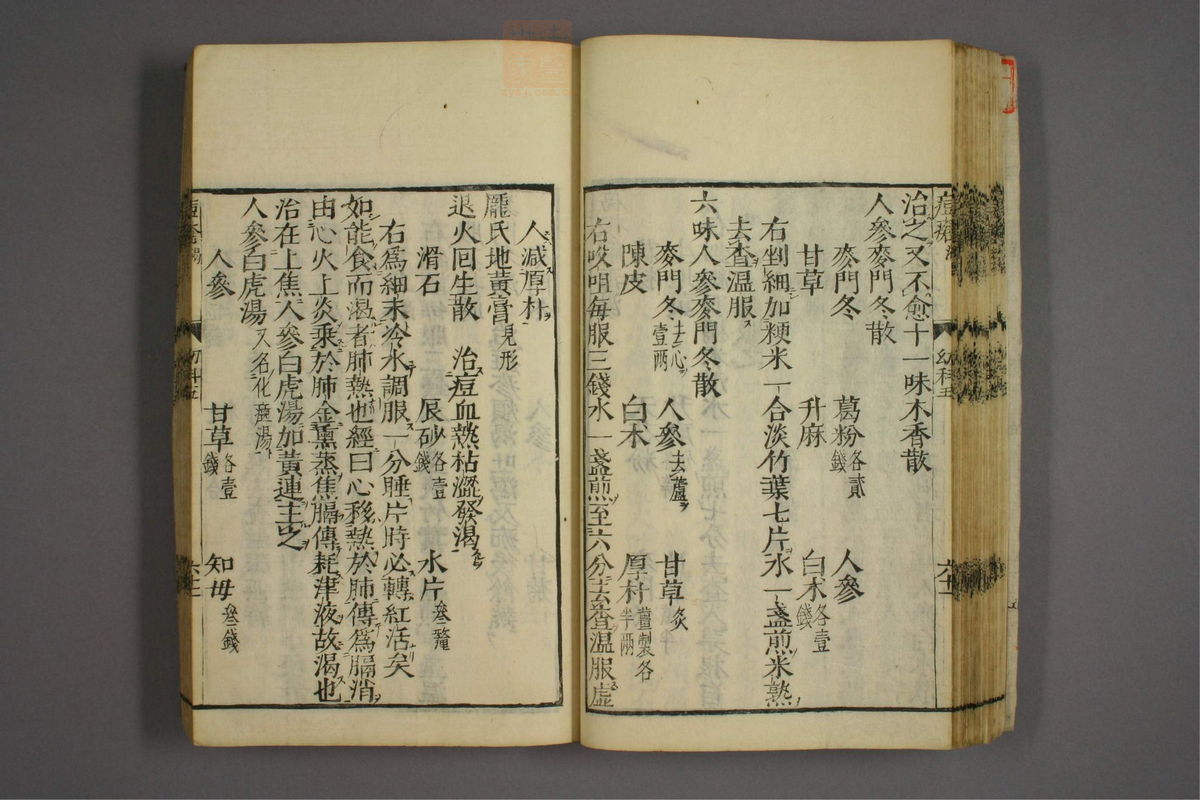 治之又不愈十一味木香散
人參麥門冬散
麥門冬 葛粉各貳錢 人參
甘草 升麻 白朮各壹錢
右剉細加粳米一合淡竹葉七片水一盞煎米熟
去查溫服
六味人參麥門冬散
麥門冬去心壹兩 人參去蘆 甘草炙
陳皮 白朮 厚朴薑製各半兩
右㕮咀每服三錢水一盞煎至六分去查溫服虛
人減厚朴
龐氏地黃膏見形
退火回生散 治痘血熱枯澀發渴
滑石 辰砂各壹錢 水片叁釐
右爲細末冷水調服一分睡片時必轉紅活矣
如能食而渴者肺熱也經曰心移熱於肺傳爲膈消
由心火上炎乘於肺金熏蒸焦膈傳耗津液故渴也
治在上焦人參白虎湯加黃連主之
人參白虎湯又名化斑湯
人參 甘草各壹錢 知母叁錢
幼科五
六十二